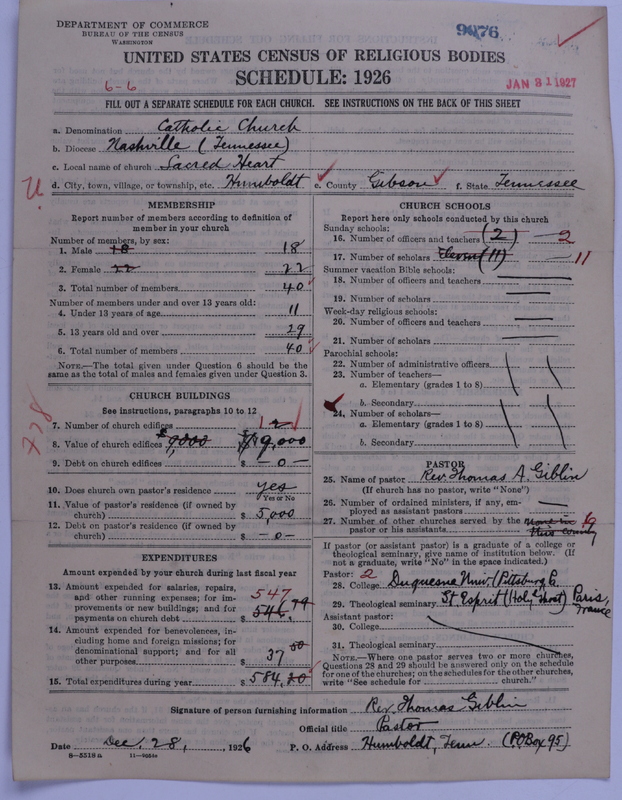 DEPARTMENT OF COMMERCE
BUREAU OF THE CENSUS
WASHINGTON
9076
UNITED STATES CENSUS OF RELIGIOUS BODIES
SCHEDULE: 1926
6-6
JAN 31 1927
FILL OUT A SEPARATE SCHEDULE FOR EACH CHURCH. SEE INSTRUCTIONS ON THE BACK OF THIS SHEET
a. Denomination Catholic Church
b. Diocese Nashville (Tennessee)
c. Local name of church Sacred Heart
d. City, town, village, or township, etc. Humboldt e. County Gibson f. State Tennessee
MEMBERSHIP
Report number of members according to definition of
member in your church
Number of members, by sex:
1. Male 18 18
2. Female 22 22
3. Total number of members 40
Number of members under and over 13 years old:
4. Under 13 years of age 11
5. 13 years old and over 29
6. Total number of members 40
NOTE.—The total given under Question 6 should be
same as the total of males and females given under Question 3.
CHURCH BUILDINGS
See instructions, paragraphs 10 to 12
7. Number of church edifices 1
8. Value of church edifices $9,000 $9,000
9. Debt on church edifices $ -0-
10. Does church own pastor's residence yes
Yes or No
11. Value of pastor's residence (if owned by
church) $ 5,000
12. Debt on pastor's residence (if owned by
church) $ -0-
EXPENDITURES
Amount expended by your church during last fiscal year
13. Amount expended for salaries, repairs,
and other running expenses; for im-
provements or new buildings; and for
payments on church debt $ 547 546.79
14. Amount expended for benevolences, in-
cluding home and foreign missions; for
denominational support; and for all
other purposes 37 50
15. Total expenditures during year $ 584.20
CHURCH SCHOOLS
Report here only schools conducted by this church
Sunday schools:
16. Number of officers and teachers (2) 2
17. Number of scholars Eleven (11) 11
Summer vacation Bible schools:
18. Number of officers and teachers
19. Number of scholars
Week-day religious schools:
20. Number of officers and teachers
21. Number of scholars
Parochial schools:
22. Number of administrative officers
23. Number of teachers—
a. Elementary (grades 1 to 8)
b. Secondary
24. Number of scholars—
a. Elementary (grades 1 to 8)
b. Secondary
PASTOR
25. Name of pastor Rev. Thomas A. Giblin
(If church has no pastor, write "None")
26. Number of ordained ministers, if any, em-
ployed as assistant pastors
27. Number of other churches served by the 6
pastor or his assistants this county
If pastor (or assistant pastor) is a graduate of a college or
theological seminary, give name of institution below. (If
not a graduate, write "No" in the space indicated.)
Pastor: 2
28. College Duquesne Univ. (Pittsburg Pa.
29. Theological seminary St Esprit (Holy Ghost) Paris, France
Assistant pastor:
30. College
31. Theological seminary
NOTE.—Where one pastor serves two or more churches,
Questions 28 and 29 should be answered only on the schedule
for one of the churches; on the schedules for the other churches,
write "See schedule for church."
Signature of person furnishing information Rev. Thomas Giblin
Official title Pastor
Date Dec. 28, 1926 P. O. Address Humboldt, Tenn. (P.O. Box 95)
8—5518 a